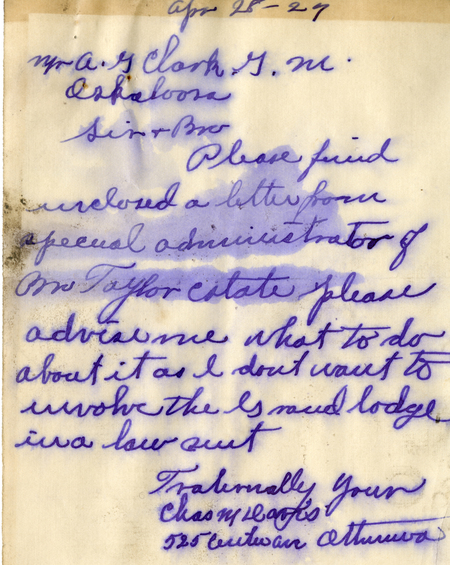 Apr 28-27
Mr A. G Clark G. M.
Oskaloosa
Sir + Bro
Please find
inclosed a letter from
special administrator of
Bro Taylor estate please
advise me what to do
about it as I dont want to
involve the Grand lodge
in a law suit
Fraternally your
Chas M Davis
525 Ottumwa